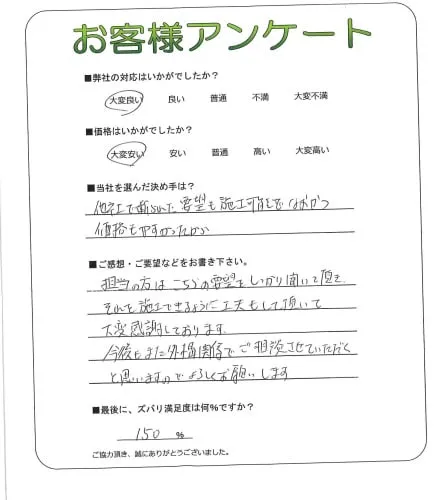 お客様アンケート
■弊社の対応はいかがでしたか?
大変良い 良い 普通 不満 大変不満
■価格はいかがでしたか?
大変安い 安い 普通 高い 大変高い
■当社を選んだ決め手は?
他社で断られた要望も施工可能でなおかつ
価格もやすかったから
■ご感想・ご要望などをお書き下さい。
担当の方はこちらの要望をしっかり聞いて頂き、
それを施工できるように工夫もして頂いて
大変感謝しております。
今後もまた外構関係でご相談させていただく
と思いますのでよろしくお願いします
■最後に、ズバリ満足度は何%ですか?
150 %
ご協力頂き、誠にありがとうございました。